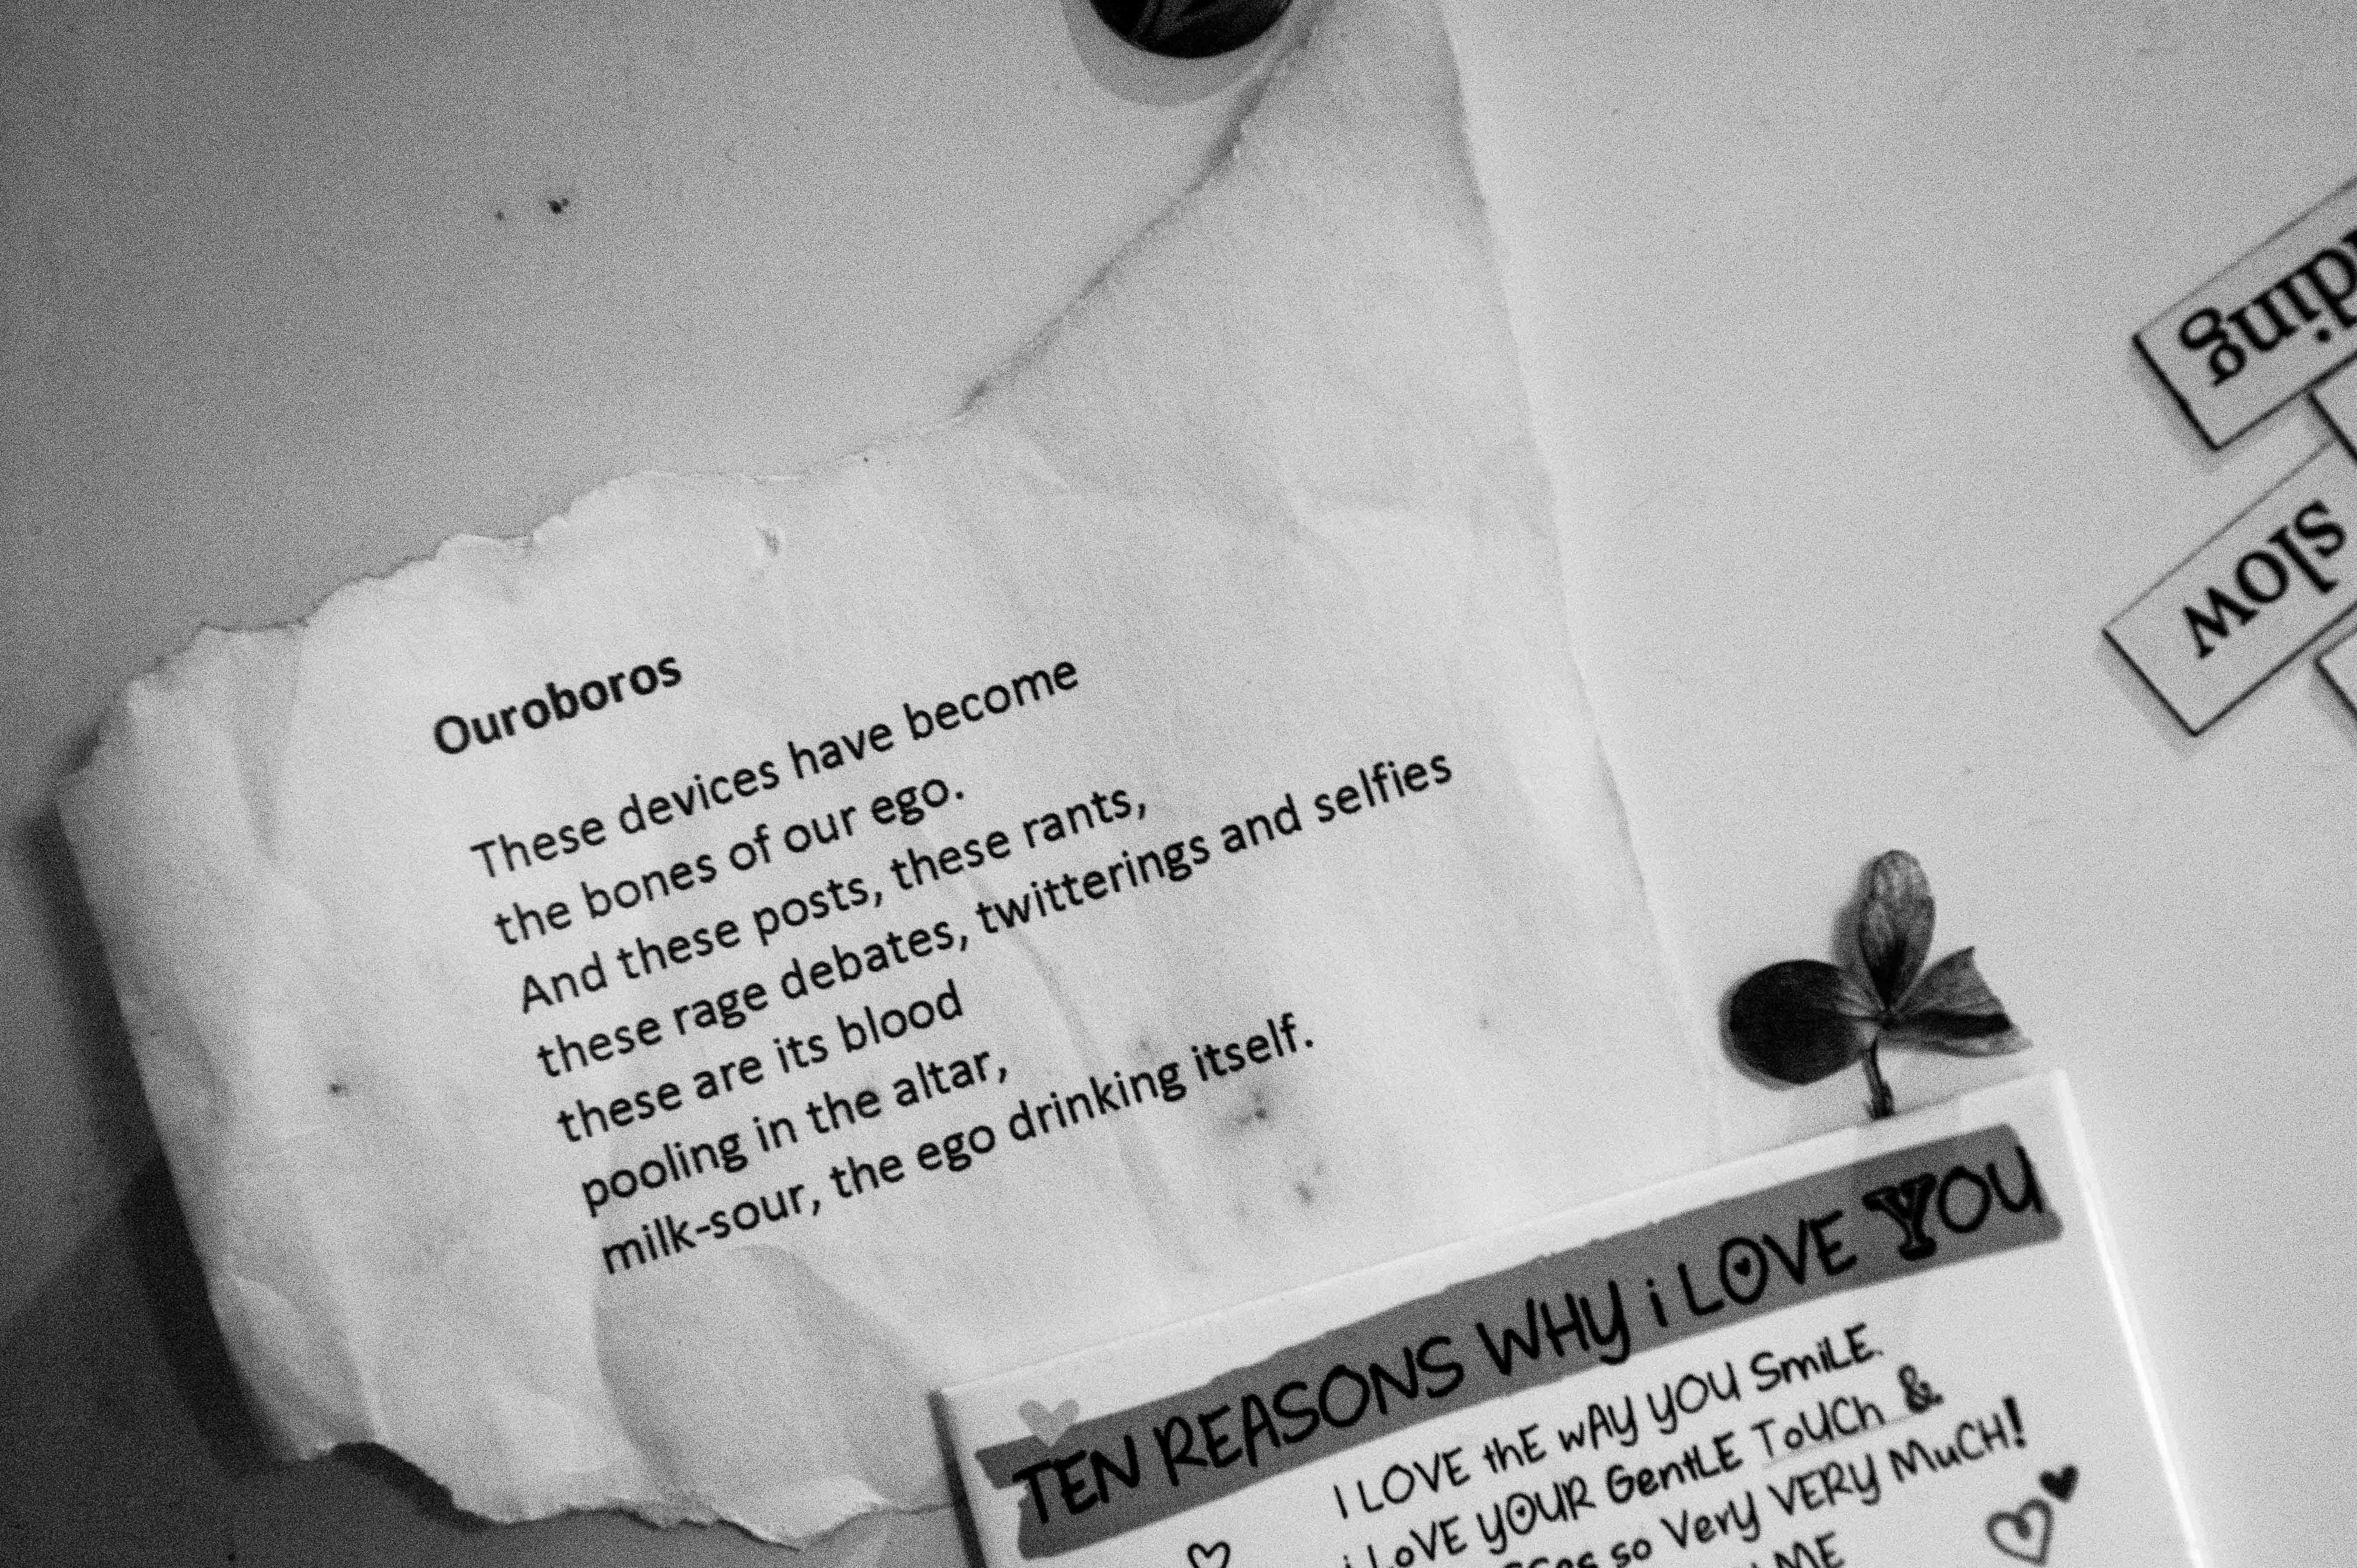 Ouroboros
These devices have become
the bones of our ego.
And these posts, these rants,
these rage debates, twitterings and selfies
these are its blood
pooling in the altar,
milk-sour, the ego drinking itself.
TEN REASONS WHY i LOVE YOU
I LOVE thE wAY YOU SmiLE.
i LoVE YOUR GentLE ToUCh &
so VerY VERY MuCH!
ME
slow